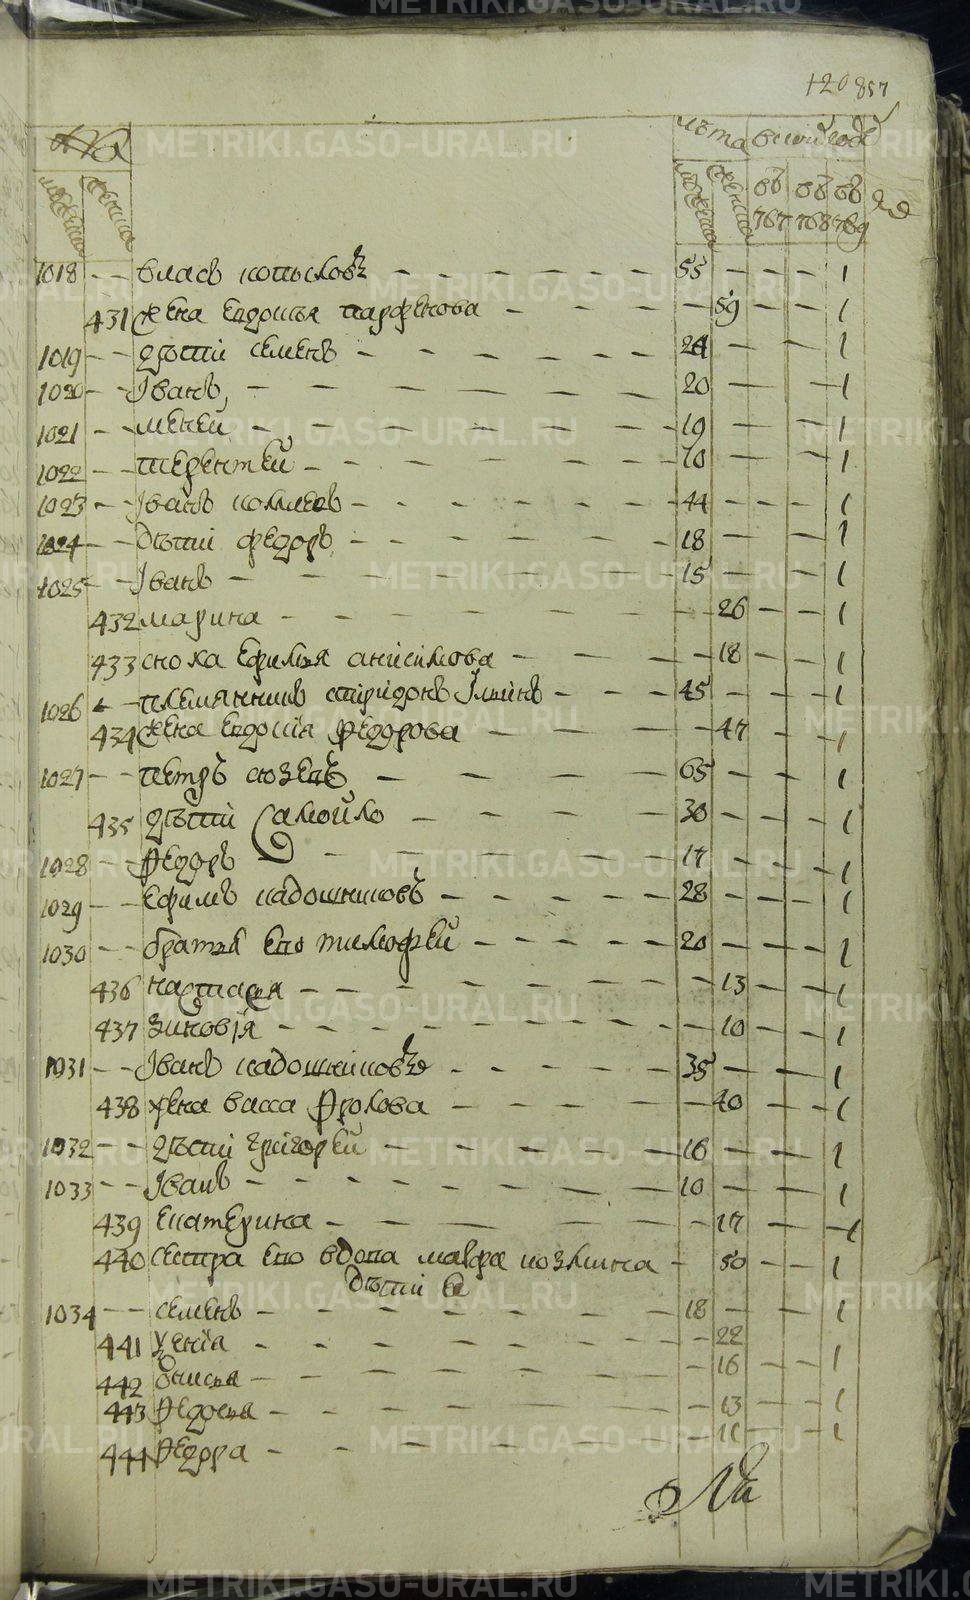 METRIKI.GASO-URAL.RU
120 857
№
лѣта
мужеска женска мужеска женска въ 767 въ 768 въ 769
1018 -- власъ копысковъ 55 1
431 жена евдокѣя парфенова 59 1
1019 -- дѣти семенъ 24 1
1020 -- Іванъ 20 1
1021 -- мекей 19 1
1022 -- терентей 10 1
1023 -- Іванъ 44 1
1024 -- дѣти федоръ 18 1
1025 -- Іванъ 15 1
432 марина 26 1
433 сноха ефимья анисимова 18 1
1026 -- племянникъ спиридонъ Ильинъ 45 1
434 жена евдокия федорова 47 1
1027 -- петръ 65 1
435 дѣти Самойло 30 1
1028 -- федоръ 17 1
1029 -- ефимъ кадошниковъ 28 1
1030 -- братья ево тимофей 20 1
436 настасья 13 1
437 зиновія 10 1
1031 -- Іванъ кадошниковъ 35 1
438 жена васса фролова 40 1
1032 -- дѣти григорей 16 1
1033 -- Іванъ 10 1
439 екатерина 17 1
440 сестра ево вдова мавра козмина 50 1
дѣти ее
1034 -- семенъ 18 1
441 22
442 16 1
443 федосья 13 1
444 федора 11 1